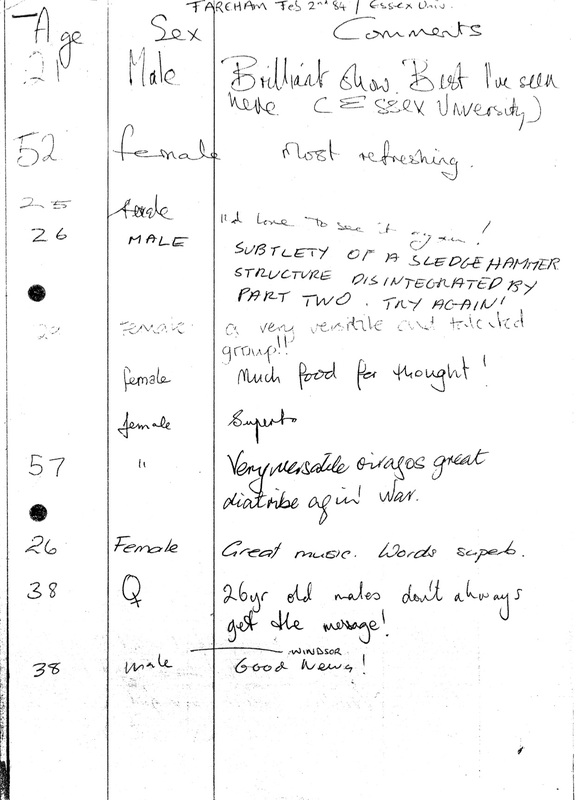 FAREHAM Feb 2nd 84 / Essex Univ.
Age Sex Comments
21 Male Brilliant show. Best I've seen
here (ESSEX University)
52 female Most refreshing.
25 female I'd love to see it again!
26 MALE SUBTLETY OF A SLEDGEHAMMER
STRUCTURE DISINTEGRATED BY
PART TWO. TRY AGAIN!
Female a very versitile and talented
group!!
female Much food for thought!
female Superb
57 " Very versatile viragos great
diatribe agin' War.
26 Female Great music. Words superb.
38 ♀ 26yr old males don't always
get the message!
WINDSOR
38 male Good News!